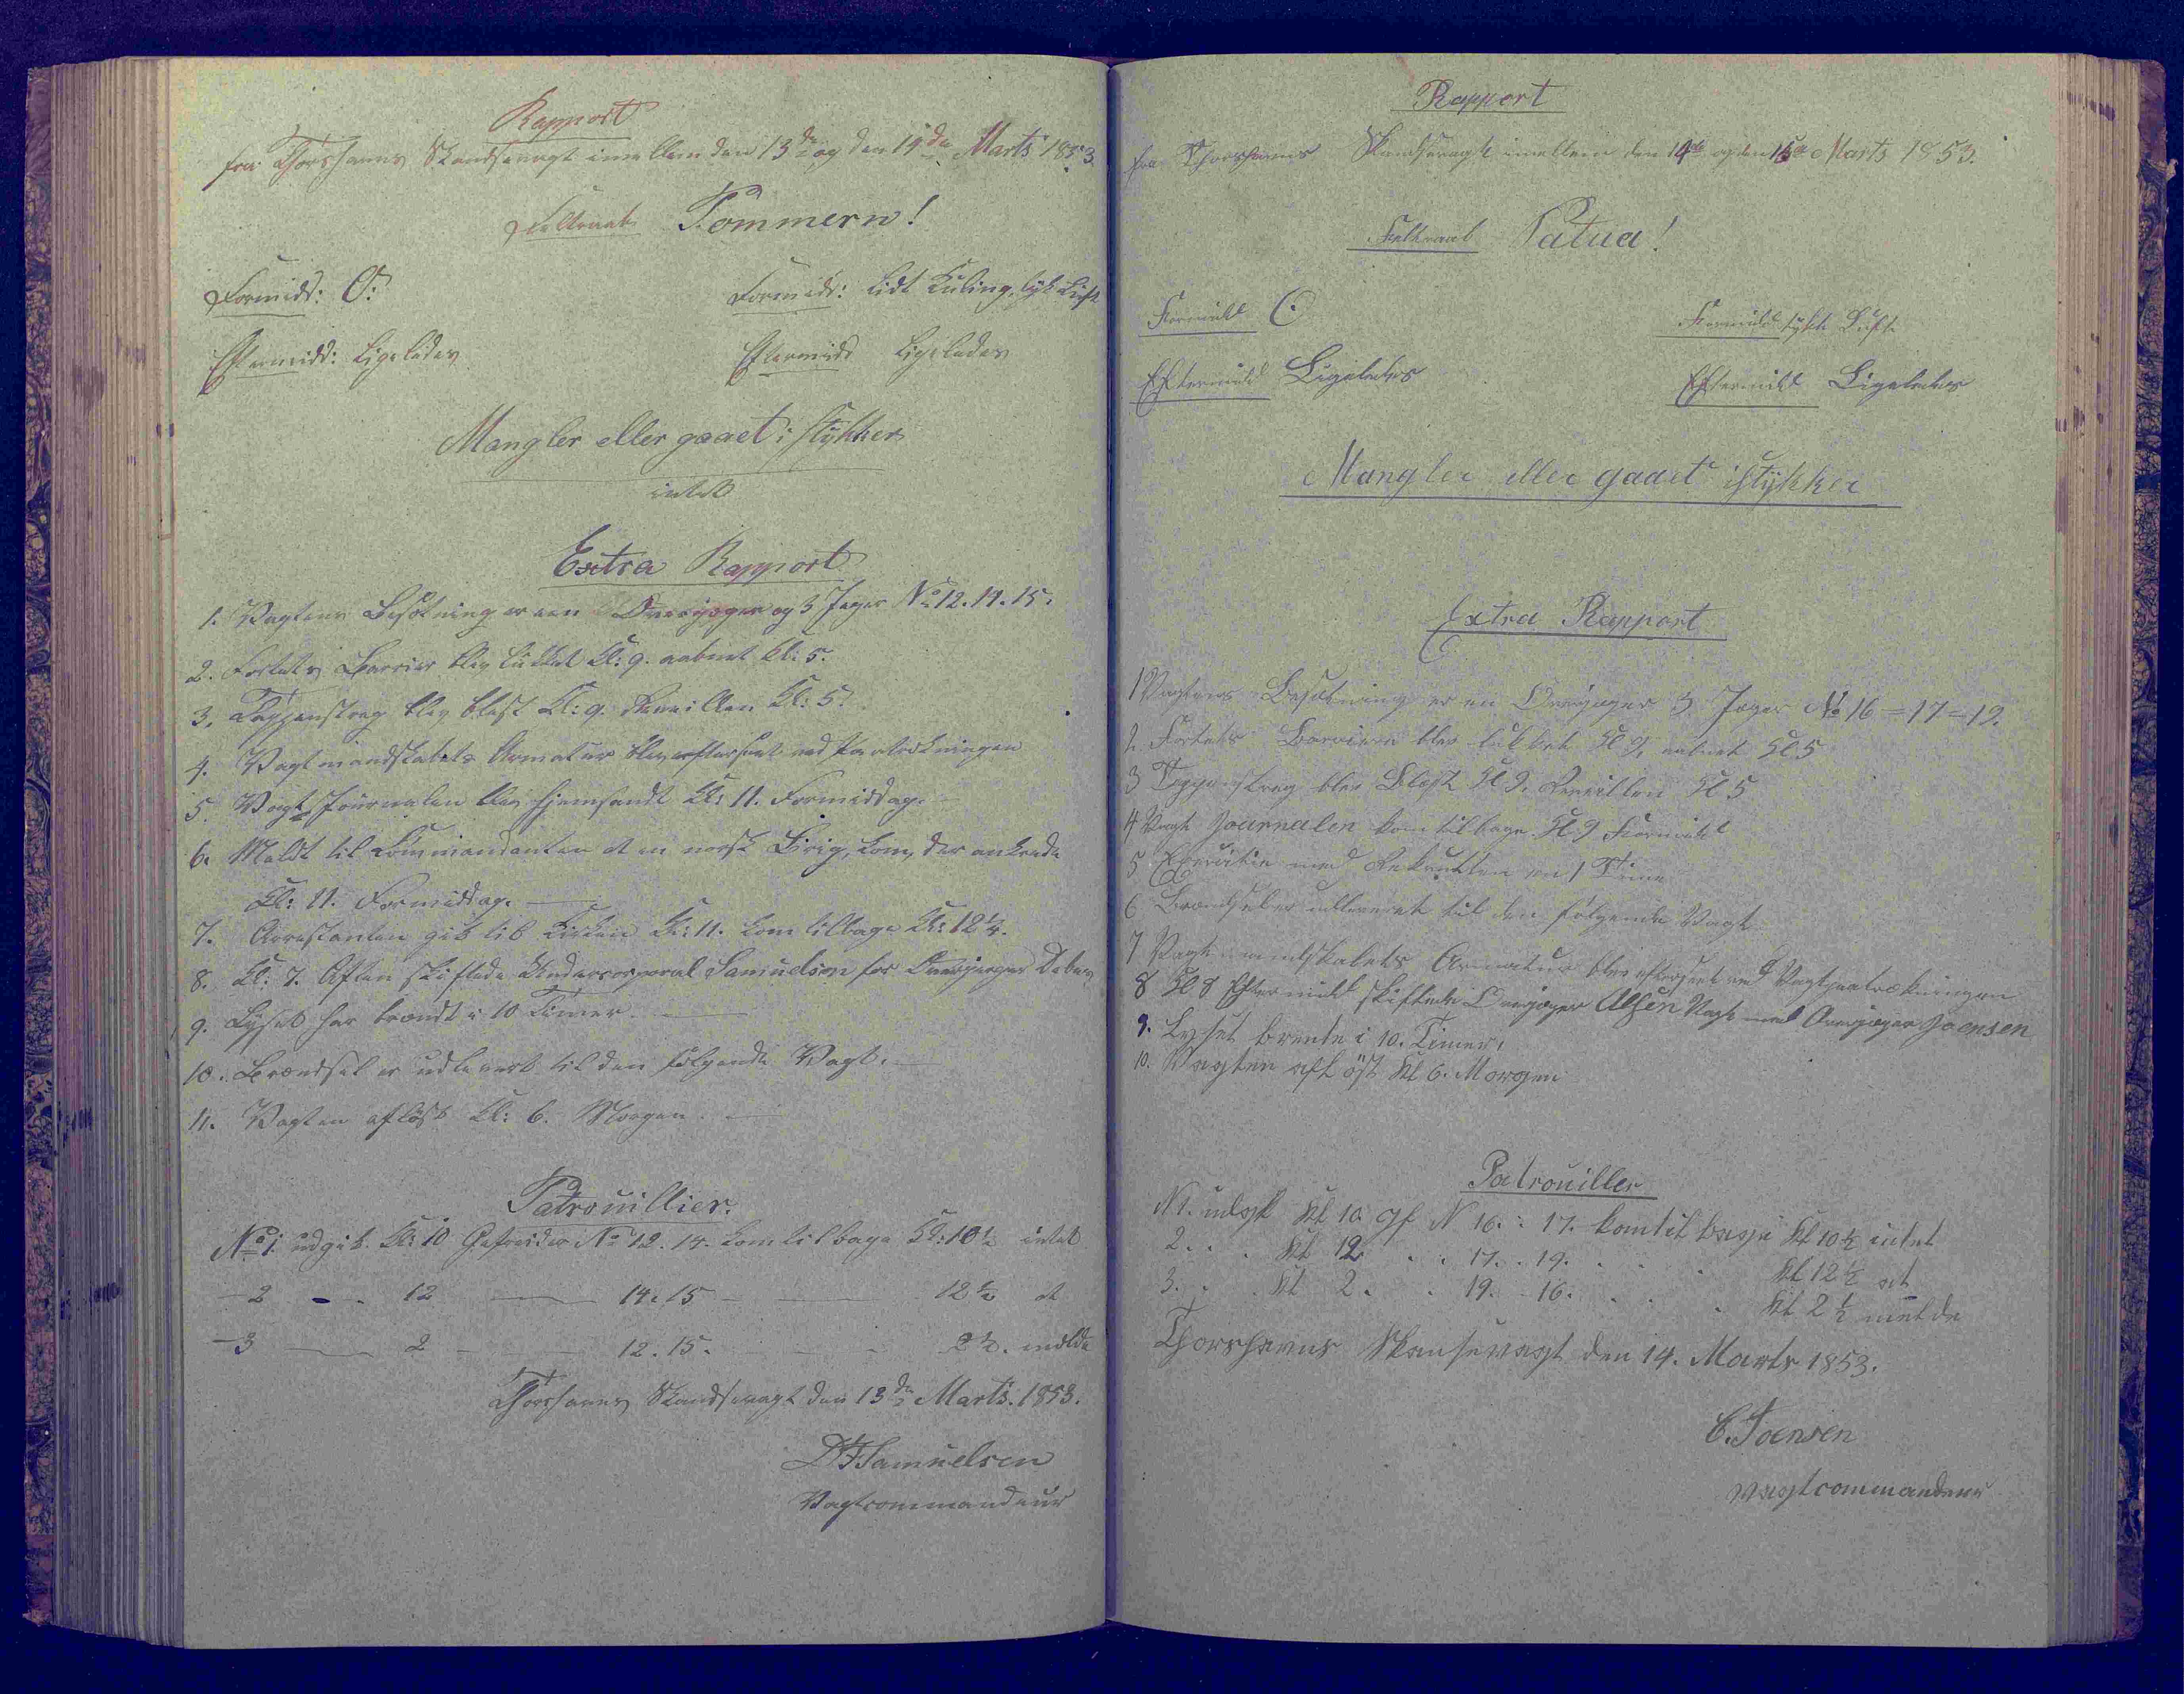 Rapport
fra Thorshavns Skandsevagt imellem den 13de og den 14de Marts 1853.
Feltraab Pommern!
Formidd: O:
Formidd: lidt Kuling, tyk Luft
Eftermidd: Ligeledes
Eftermidd Ligeledes
Mangler eller gaaet i stykker
intet
Extra Rapport
1. Vagtens Besætning er een Overjæger og 3 Jæger No 12. 14. 15.
2. Fortets Barrier blev lukket Kl: 9. aabnet kl: 5.
3. Tappenstreg blev blæst Kl: 9. Reveillen Kl: 5.
4. Vagtmandskabets Armatur blev efterseet ved Paatrækningen
5. Vagt Journalen blev hjemsendt Kl: 11. Formiddag.
6. Meldt til Commandanten at en norsk Brig, kom, der ankrede
Kl: 11. Formiddag.
7. Arrestanten gik til Kirken Kl: 11. kom tilbage Kl: 12¼.
8. Kl: 7. Aften skiftede Undercorporal Samuelsen for Overjæger Debes
9. Lyset har brændt i 10 Timer.
10. Brændsel er udleveret til den følgende Vagt.
11. Vagten afløst Kl: 6. Morgen.
Patrouillier.
No 1. udgik Kl: 10 Gefreider No 12. 14. kom tilbage Kl: 10½ intet
- 2 - - 12 14. 15 12½ at
- 3 2 12. 15. 2½. melde
Thorshavns Skandsevagt den 13de Marts. 1853.
Samuelsen
Vagtcommandeur
Rapport
fra Thorshavns Skandsevagt imellem den 14de og den 15de Marts 1853.
Feltraab Patua!
Formidd O:
Formidd tykt Luft
Eftermidd Ligeledes
Eftermidd Ligeledes
Mangler eller gaaet istykker
Extra Rapport
1 Vagtens Besætning er en Overjæger 3 Jæger No 16 = 17 = 19.
2. Fortets Barriere blev lukket Kl 9, aabnet Kl 5
3 Tappenstreg blev Blæst Kl 9. Reveillen Kl 5
4 Vagt Journalen kom tilbage Kl 9 Formidd
5 Exercitie med Rekrutten en 1 Time
6 Brændsel er udleveret til den følgende Vagt
7 Vagtmandskabets Armatur blev efterseet ved Vagtpaatrækningen
8 Kl 8 Eftermidd skiftede Overjæger Olsen Vagt med Overjæger Joensen
9. Lyset brente i 10. Timer.
10. Vagten afløst Kl 6. Morgen
Patrouiller
N 1. udgik Kl 10 Gf N 16. : 17. kom tilbage Kl 10½ intet
2. . . Kl 12 . . 17. . 19. . . . Kl 12½ at
3. . . Kl 2. . 19. - 16. . . . Kl 2½ melde
Thorshavns Skansevagt den 14. Marts 1853.
C. Joensen
Vagtcommandeur